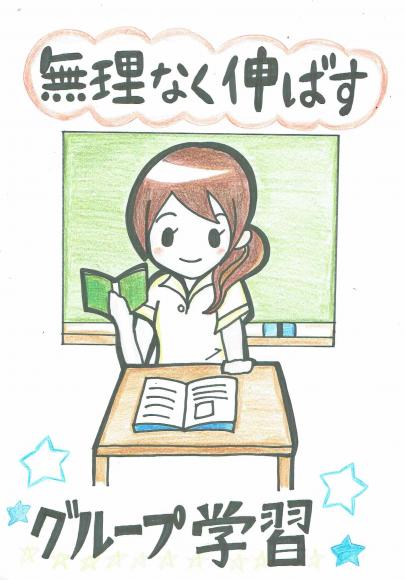 無理なく伸ばす
グループ学習